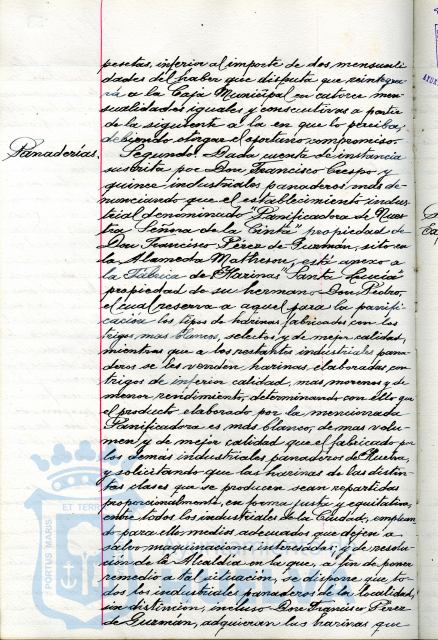 pesetas, inferior al importe de dos mensuali
dades del haber que disfruta que reintegra
rá a la Caja Municipal en catorce men
sualidades iguales y consecutivas a partir
de la siguiente a la en que lo perciba,
debiendo otorgar el oportuno compromiso.
Panaderías.
Segundo: Dada cuenta de instancia
suscrita por Don Francisco Crespo y
quince industriales panaderos más de-
nunciando que el establecimiento indus
trial denominado "Panificadora de Nues
tra Señora de la Cinta" propiedad de
Don Francisco Pérez de Guzmán, sito en
la Alameda Matheson, está anexo a
la Fábrica de Harinas "Santa Lucía"
propiedad de su hermano Don Pedro,
el cual reserva a aquel para la panifi
cación los tipos de harinas fabricados con los
trigos mas blancos, selectos y de mejor calidad,
mientras que a los restantes industriales pana
deros se les venden harinas elaboradas con
trigos de inferior calidad, mas morenos y de
menor rendimiento, determinando con ello que
el producto elaborado por la mencionada
Panificadora es más blanco, de mas volu-
men y de mejor calidad que el fabricado por
los demás industriales panaderos de Huelva,
y solicitando que las harinas de las distin-
tas clases que se producen sean repartidas
proporcionalmente, en forma justa y equitativa,
entre todos los industriales de la Ciudad, emplean
do para ello medios adecuados que dejen a
salvo maquinaciones e intereses; y de resolu
ción de la Alcaldía en la que, a fin de poner
remedio a tal situación, se dispone que to-
dos los industriales panaderos de la localidad,
sin distinción, incluso Don Francisco Pérez
de Guzmán, adquieran las harinas que
PORTUS MARIS
ET TERR